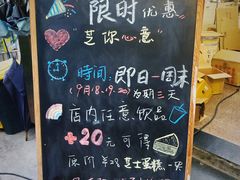 限时优惠
"芝你心意"
时间：即日—周末
(9月18.19.20) 为期三天
店内任意饮品
+20元可得
原价 芝士蛋糕一